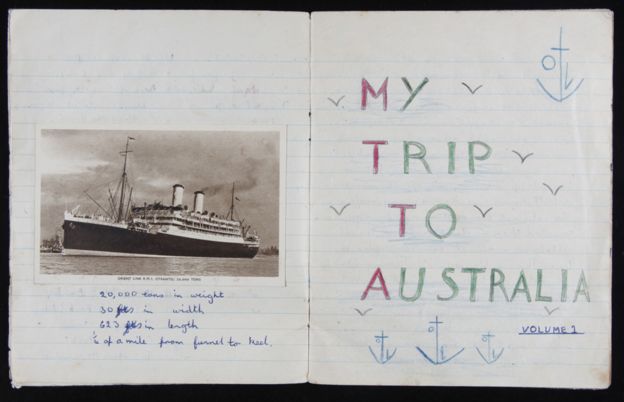 ORIENT LINE R.M.S. OTRANTO, 20,000 TONS
20,000 tons in weight
30 in width
623 in length
of a mile from funnel to keel.
MY
TRIP
TO
AUSTRALIA
VOLUME 1